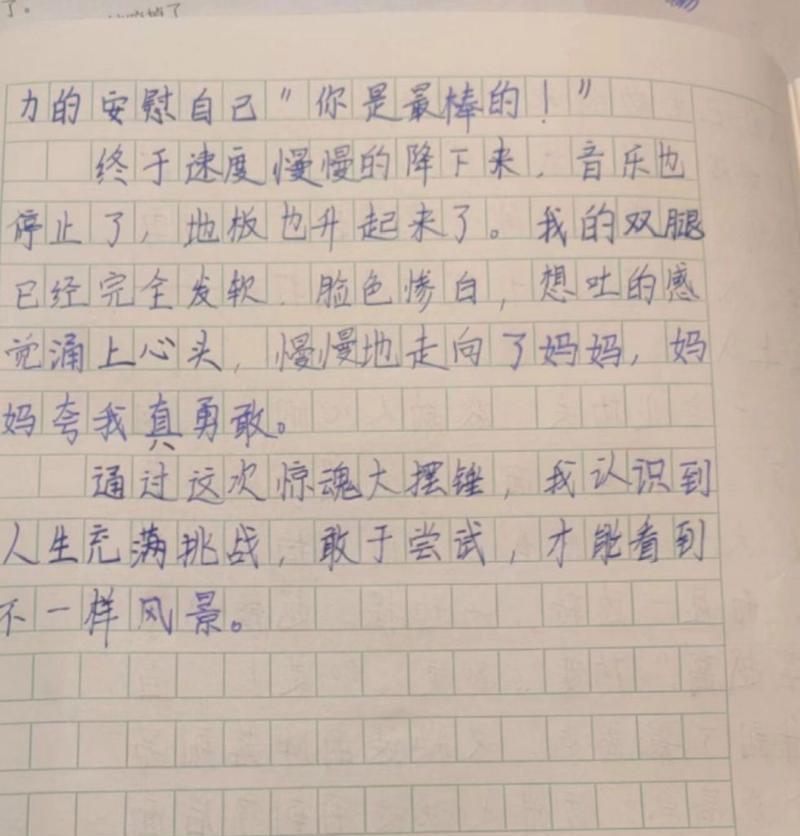 了。
力的安慰自己"你是最棒的！"
终于速度慢慢的降下来，音乐也
停止了，地板也升起来了。我的双腿
已经完全发软．脸色惨白，想吐的感
觉涌上心头，慢慢地走向了妈妈，妈
妈夸我真勇敢。
通过这次惊魂大摆锤，我认识到
人生充满挑战，敢于尝试，才能看到
不一样风景。